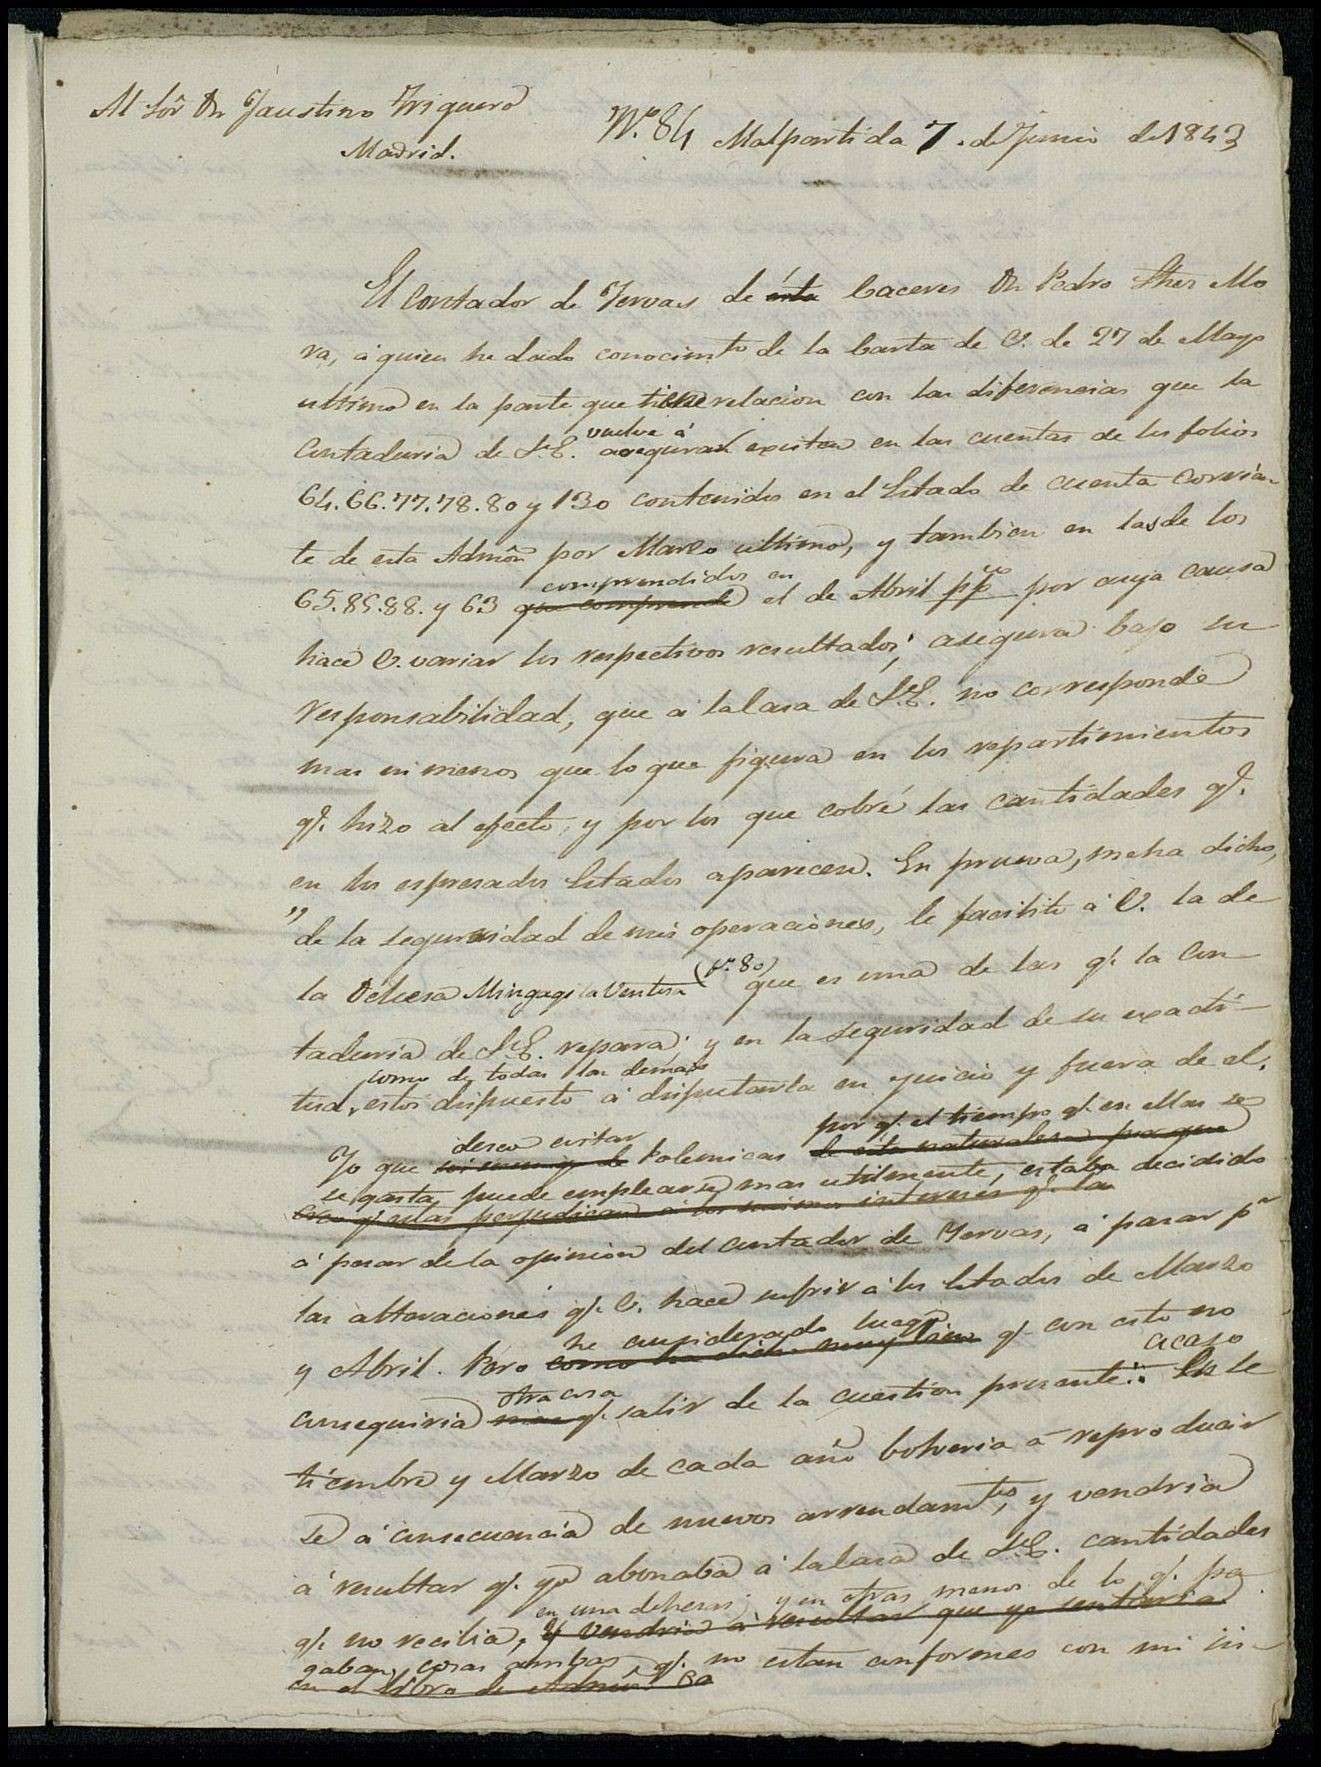 Al Sor Dn Faustino Triguero
Madrid.
No. 84 Malpartida 7. de Junio de 1843
El Contador de Yervas de ésta Caceres Dn Pedro Shez Mo
ra, á quien he dado conocimto de la Carta de V. de 27 de Mayo
ultimo en la parte que tiene relacion con las diferencias que la
vuelve á
Contaduria de S.E. asegurar existen en las cuentas de los folios
64. 66. 77. 78. 80 y 130 contenidos en el Estado de cuenta corrien
te de esta Admon por Marzo ultimo, y tambien en las de los
comprendidos en
65. 85. 88. y 63 que comprende el de Abril ppo por cuya causa
hace V. variar los respectivos resultados; asegura bajo su
responsabilidad, que á la Casa de S.E. no corresponde
mas ni menos que lo que figura en los repartimientos
q. hizo al efecto, y por los que cobré las cantidades q.
en los espresados Estados aparecen. En prueva, me ha dicho,
" de la seguridad de mis operaciones, le facilité á V. la de
la Dehesa Mingajila Ventosa (fo. 80) que es una de las q. la Con
taduria de S.E. repara; y en la seguridad de su exacti
como de todas las demas
tud, estoi dispuesto á disputarla en juicio y fuera de el.
deseo evitar por q. el tiempo q. en ellas se
Yo que soi enemigo de Polemicas de esta naturaleza por que
se gasta puede emplearse mas utilmente, estaba decidido
creo q. estas perjudican á los mismos intereses q. la
á pesar de la opinion del contador de Yervas, á pasar pr
las alteraciones q. V. hace sufrir á los Estados de Marzo
he considerado luego
y Abril. Pero como ha dicho muy bien q. con esto no
otra cosa acaso
conseguiria mas q. salir de la cuestion presente: En Se
tiembre y Marzo de cada año bolveria á reproducir
se á consecuencia de nuevos arrendamtos, y vendria
á resultar q. yo abonaba á la Casa de S.E. cantidades
en una dehesas y en otras menos de lo q. pa
q. no recibia, y vendria á resultar que yo sentaria
gaban, cosas ambas q. no estan conformes con mi in
en el libro de Admon Ba